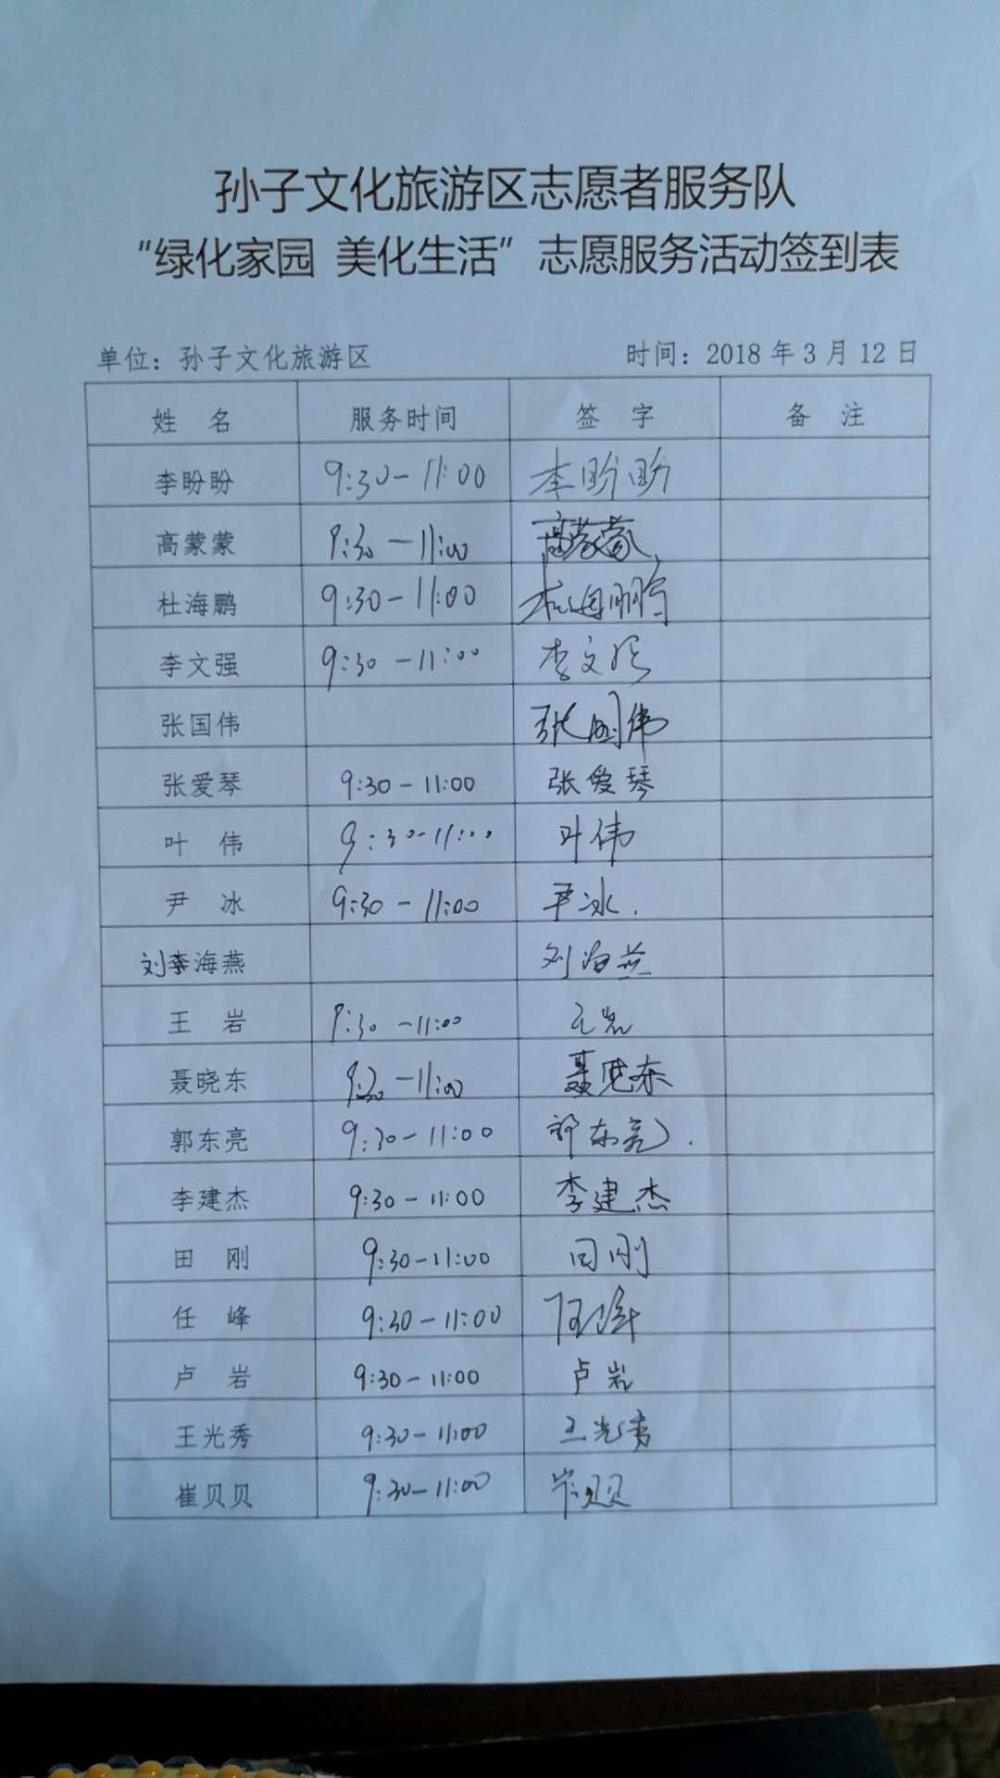 孙子文化旅游区志愿者服务队
“绿化家园 美化生活”志愿服务活动签到表
单位：孙子文化旅游区 时间：2018年3月12日
姓 名 服务时间 签 字 备 注
李盼盼 9:30-11:00 李盼盼
高蒙蒙 9:30-11:00 高蒙蒙
杜海鹏 9:30-11:00 杜海鹏
李文强 9:30-11:00 李文强
张国伟 张国伟
张爱琴 9:30-11:00 张爱琴
叶 伟 9:30-11:00 叶伟
尹 冰 9:30-11:00 尹冰.
刘李海燕 刘海燕
王 岩 9:30-11:00 王岩
聂晓东 9:30-11:00 聂晓东
郭东亮 9:30-11:00 郭东亮.
李建杰 9:30-11:00 李建杰
田 刚 9:30-11:00 田刚
任 峰 9:30-11:00 任峰
卢 岩 9:30-11:00 卢岩
王光秀 9:30-11:00 王光秀
崔贝贝 9:30-11:00 崔贝贝